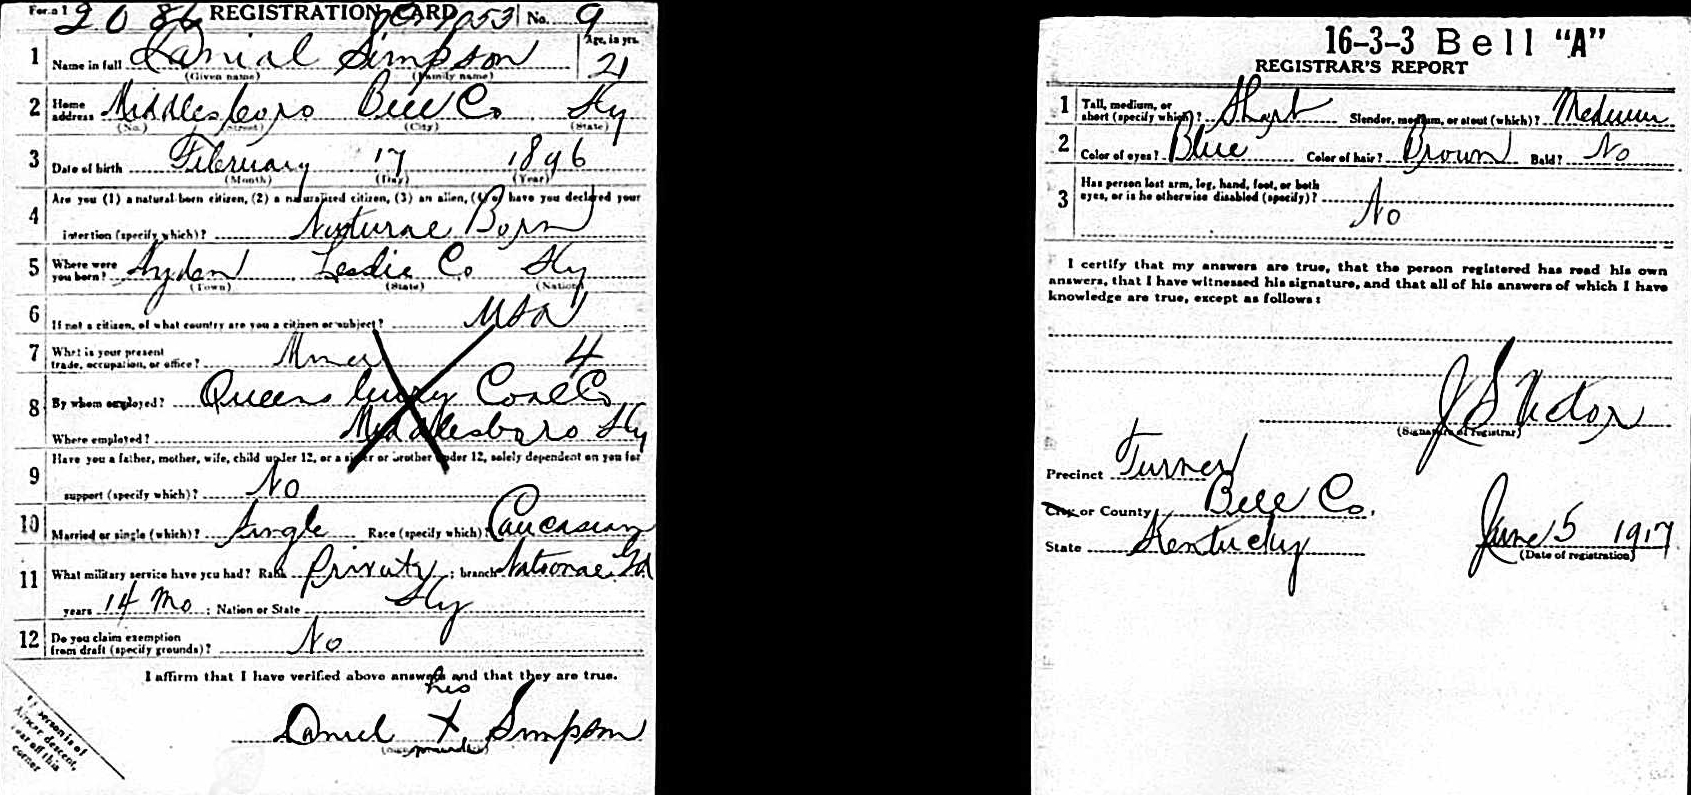 Form 1 2086 REGISTRATION CARD 1053 No. 9
1 Name in full Danial Simpson Age, in yrs. 21
(Given name) (Family name)
2 Home address Middlesboro Bell Co Ky
(No.) (Street) (City) (State)
3 Date of birth February 17 1896
(Month) (Day) (Year)
4 Are you (1) a natural-born citizen, (2) a naturalized citizen, (3) an alien, (4) or have you declared your
intention (specify which)? Natural Born
5 Where were you born? Hyden Leslie Co Ky
(Town) (State) (Nation)
6 If not a citizen, of what country are you a citizen or subject? USA
7 What is your present trade, occupation, or office? Miner 4
8 By whom employed? Queens Coal Co
Where employed? Middlesboro Ky
9 Have you a father, mother, wife, child under 12, or a sister or brother under 12, solely dependent on you for
support (specify which)? No
10 Married or single (which)? Single Race (specify which)? Caucasian
11 What military service have you had? Rank Privaty ; branch National Gd
years 14 Mo ; Nation or State Ky
12 Do you claim exemption from draft (specify grounds)? No
I affirm that I have verified above answers and that they are true.
his
Daniel X Simpson
mark
If person is of
African descent,
tear off this
corner
16-3-3 Bell "A"
REGISTRAR'S REPORT
1 Tall, medium, or short (specify which)? Short Slender, medium, or stout (which)? Medium
2 Color of eyes? Blue Color of hair? Brown Bald? No
3 Has person lost arm, leg, hand, foot, or both
eyes, or is he otherwise disabled (specify)?
No
I certify that my answers are true, that the person registered has read his own
answers, that I have witnessed his signature, and that all of his answers of which I have
knowledge are true, except as follows:
J S Victor
(Signature of registrar)
Precinct Turner
City or County Bell Co.
State Kentucky
June 5 1917
(Date of registration)